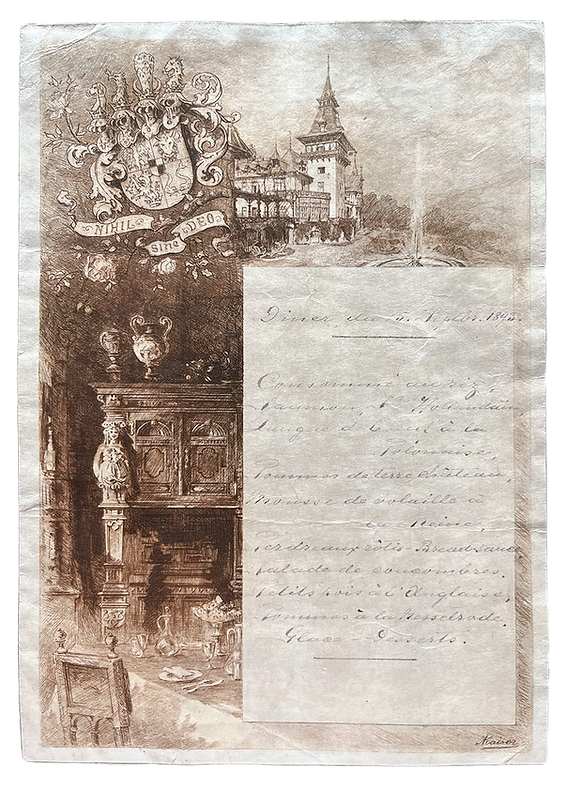 NIHIL sine DEO
Diner du 5. Septbr. 189
Consommé au riz,
Saumon, s Hollandaise,
Langue de boeuf à la
Polonaise,
Pommes de terre château,
Mousse de volaille à
la Reine,
Perdreaux rôtis - Breadsauce,
Salade de concombres,
Petits pois à l'Anglaise,
Pommes à la Nesselrode,
Glace - Desserts.
Kaiser